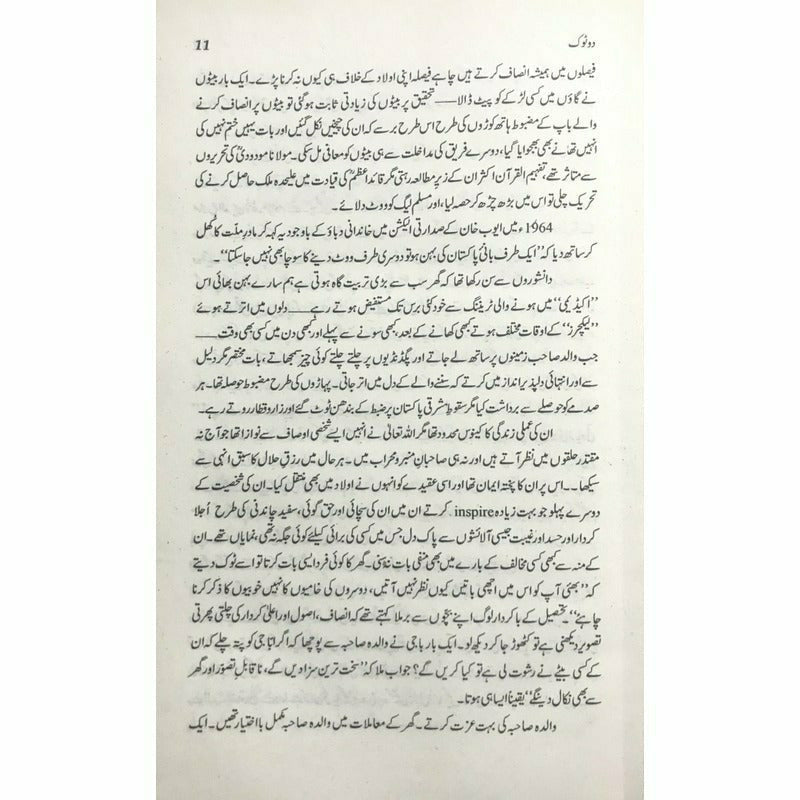 دو ٹوک 11
فیصلوں میں ہمیشہ انصاف کرتے ہیں چاہے فیصلہ اپنی اولاد کے خلاف ہی کیوں نہ کرنا پڑے۔ ایک بار بیٹوں
نے گاؤں میں کسی لڑکے کو پیٹ ڈالا—— تحقیق پر بیٹوں کی زیادتی ثابت ہوگئی تو بیٹوں پر انصاف کرنے
والے باپ کے مضبوط ہاتھ کوڑوں کی طرح اس طرح برسے کہ ان کی چیخیں نکل گئیں اور بات یہیں ختم نہیں کی
انہیں تھانے بھی بھجوایا گیا، دوسرے فریق کی مداخلت سے ہی بیٹوں کو معافی مل سکی۔ مولانا مودودیؒ کی تحریروں
سے متاثر تھے، تفہیم القرآن اکثر ان کے زیرِ مطالعہ رہتی مگر قائداعظمؒ کی قیادت میں علیحدہ ملک حاصل کرنے کی
تحریک چلی تو اس میں بڑھ چڑھ کر حصہ لیا، اور مسلم لیگ کو ووٹ دلائے۔
1964ء میں ایوب خان کے صدارتی الیکشن میں خاندانی دباؤ کے باوجود یہ کہہ کر مادرِ ملّت کا کُھل
کر ساتھ دیا کہ ”ایک طرف بانیٔ پاکستان کی بہن ہو تو دوسری طرف ووٹ دینے کا سوچا بھی نہیں جا سکتا“۔
دانشوروں سے سن رکھا تھا کہ گھر سب سے بڑی تربیت گاہ ہوتی ہے ہم سارے بہن بھائی اس
”اکیڈیمی“ میں ہونے والی ٹریننگ سے خود کئی برس تک مستفیض ہوتے رہے—— دلوں میں اترتے ہوئے
”لیکچرز“ کے اوقات مختلف ہوتے کبھی کھانے کے بعد، کبھی سونے سے پہلے اور کبھی دن میں کسی بھی وقت——
جب والد صاحب زمینوں پر ساتھ لے جاتے اور پگڈنڈیوں پر چلتے چلتے کوئی چیز سمجھاتے، بات مختصر مگر دلیل
سے اور انتہائی دلپذیر انداز میں کرتے کہ سننے والے کے دل میں اتر جاتی۔ پہاڑوں کی طرح مضبوط حوصلہ تھا۔ ہر
صدمے کو حوصلے سے برداشت کیا مگر سقوطِ مشرقی پاکستان پر ضبط کے بندھن ٹوٹ گئے اور زار و قطار روتے رہے۔
ان کی عملی زندگی کا کینوس محدود تھا مگر اللہ تعالیٰ نے انہیں ایسے شخصی اوصاف سے نوازا تھا جو آج نہ
مقتدر حلقوں میں نظر آتے ہیں اور نہ ہی صاحبانِ منبر و محراب میں۔ ہر حال میں رزقِ حلال کا سبق انہی سے
سیکھا۔۔ اس پر ان کا پختہ ایمان تھا اور اسی عقیدے کو انہوں نے اولاد میں بھی منتقل کیا۔ ان کی شخصیت کے
دوسرے پہلو جو بہت زیادہ inspire کرتے ان میں ان کی سچائی اور حق گوئی، سفید چاندنی کی طرح اُجلا
کردار اور حسد اور غیبت جیسی آلائشوں سے پاک دل جس میں کسی کی برائی کیلئے کوئی جگہ نہ تھی، نمایاں تھے۔ ان
کے منہ سے کبھی کسی مخالف کے بارے میں بھی منفی بات نہ سنی۔ گھر کا کوئی فرد ایسی بات کرتا تو اسے ٹوک دیتے
کہ ”بھئی آپ کو اس میں اچھی باتیں کیوں نظر نہیں آتیں، دوسروں کی خامیوں کا نہیں خوبیوں کا ذکر کرنا
چاہیئے“۔ تحصیل کے باکردار لوگ اپنے بچوں سے برملا کہتے تھے کہ انصاف، اصول اور اعلیٰ کردار کی چلتی پھرتی
تصویر دیکھنی ہے تو کٹھوڑ جا کر دیکھ لو۔ ایک بار باجی نے والدہ صاحبہ سے پوچھا کہ اگر ابّا جی کو پتہ چلے کہ ان
کے کسی بیٹے نے رشوت لی ہے تو کیا کریں گے؟ جواب ملا کہ ”سخت ترین سزا دیں گے، ناقابلِ تصوّر اور گھر
سے بھی نکال دینگے“ یقیناً ایسا ہی ہوتا۔
والدہ صاحبہ کی بہت عزت کرتے۔ گھر کے معاملات میں والدہ صاحبہ مکمل با اختیار تھیں۔ ایک